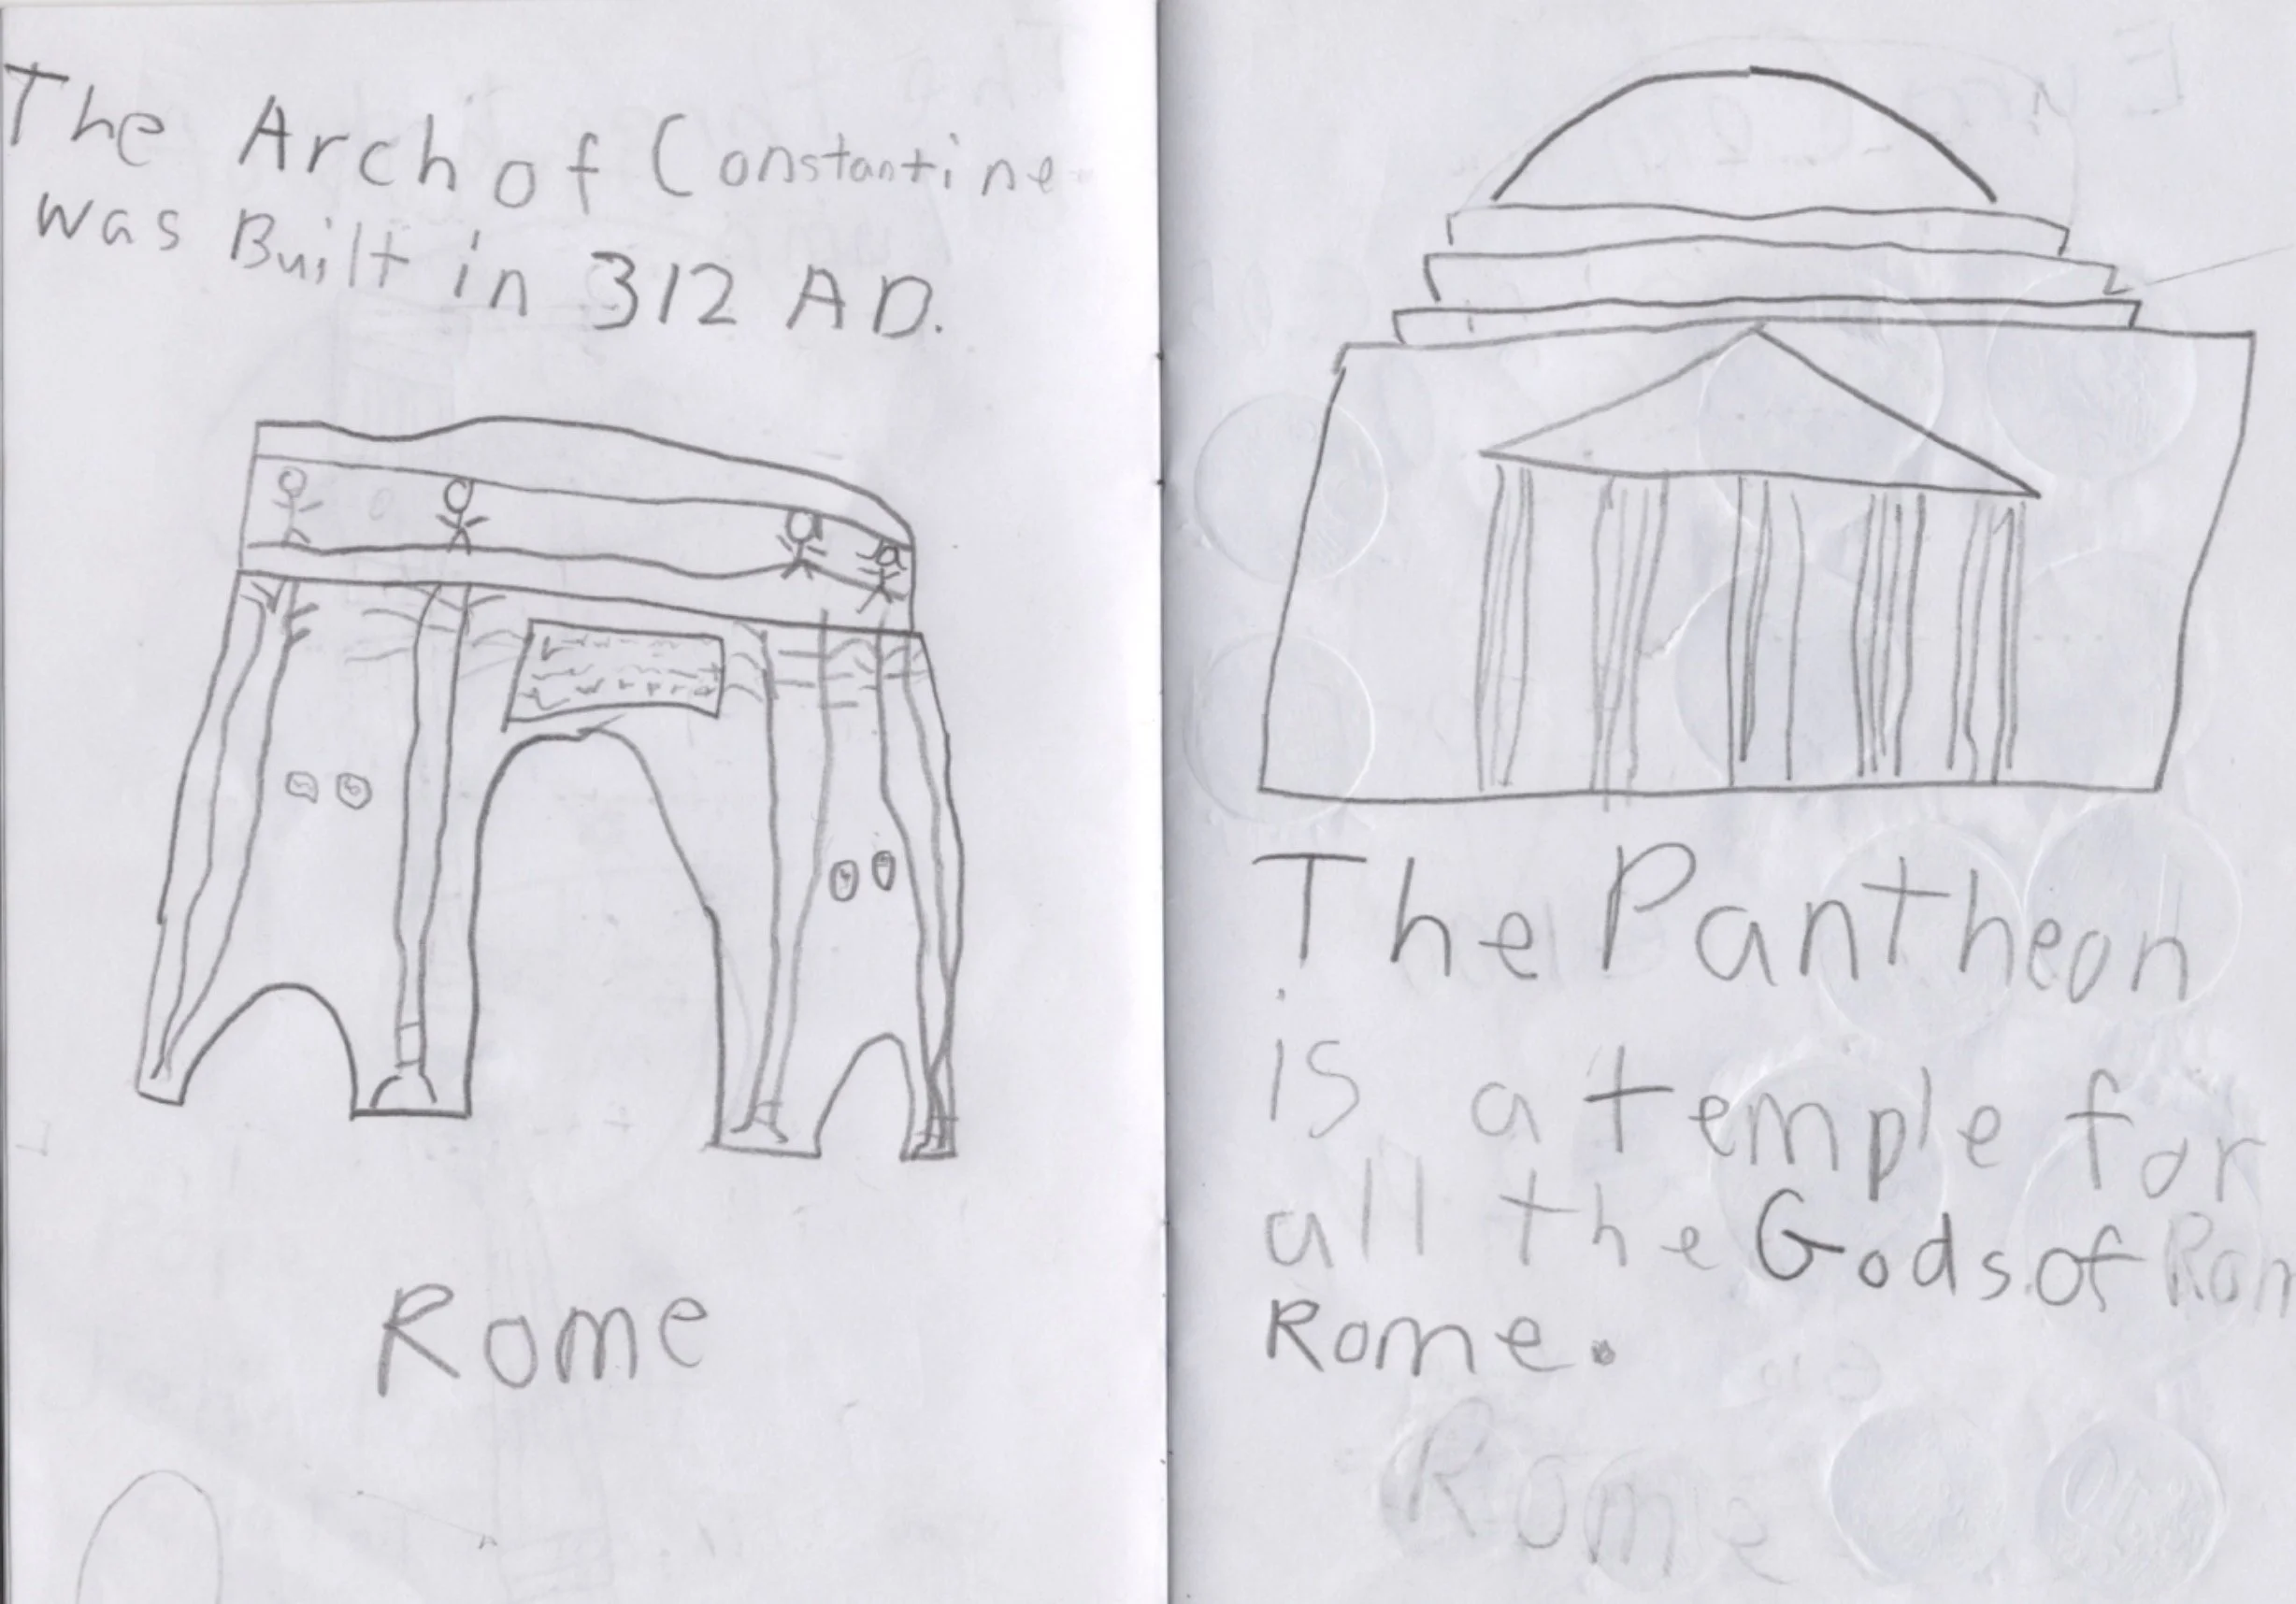 The Arch of Constantine
was Built in 312 AD.
Rome
The Pantheon
is a temple for
all the Gods of Rom
Rome.
Rome